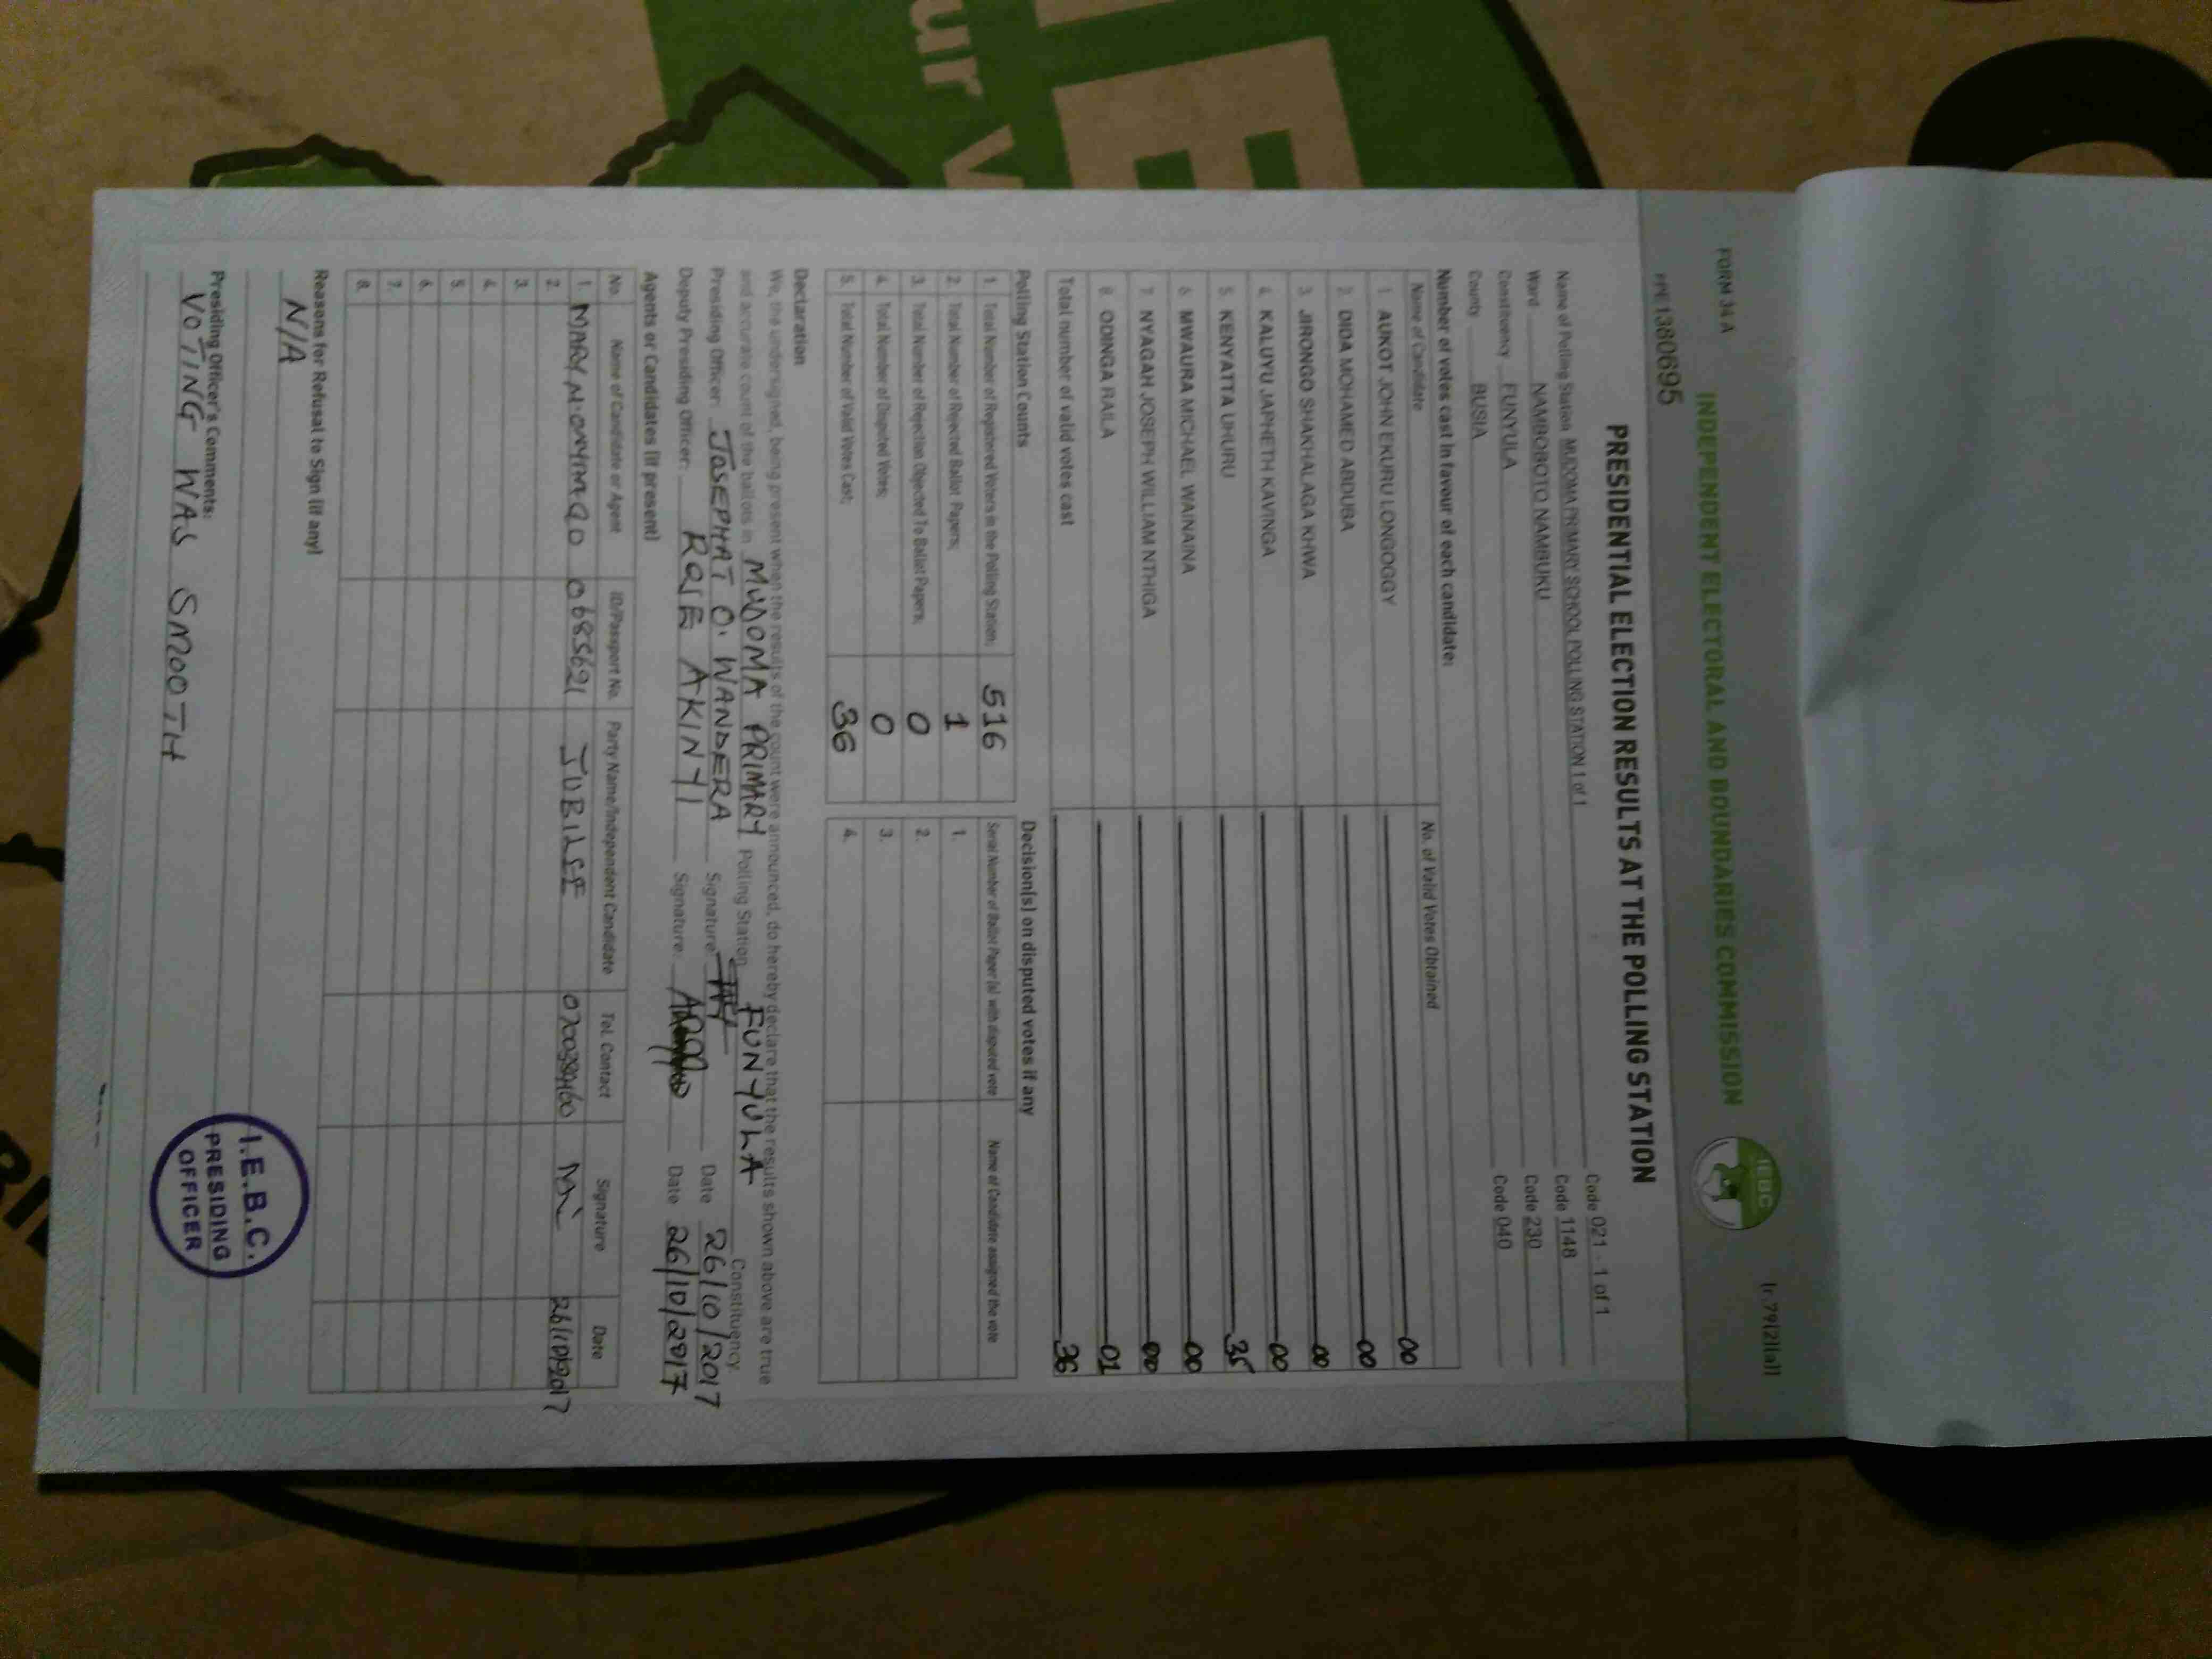 FORM 34 A
INDEPENDENT ELECTORAL AND BOUNDARIES COMMISSION
IEBC
(r.79(2)(a))
PPE 1380695
PRESIDENTIAL ELECTION RESULTS AT THE POLLING STATION
Name of Polling Station MUDOMA PRIMARY SCHOOL POLLING STATION 1 of 1 Code 021 - 1 of 1
Ward NAMBOBOTO NAMBUKU Code 1148
Constituency FUNYULA Code 230
County BUSIA Code 040
Number of votes cast in favour of each candidate:
Name of Candidate No. of Valid Votes Obtained
1. AUKOT JOHN EKURU LONGOGGY 00
2. DIDA MOHAMED ABDUBA 00
3. JIRONGO SHAKHALAGA KHWA 00
4. KALUYU JAPHETH KAVINGA 00
5. KENYATTA UHURU 35
6. MWAURA MICHAEL WAINAINA 00
7. NYAGAH JOSEPH WILLIAM NTHIGA 00
8. ODINGA RAILA 01
Total number of valid votes cast 36
Polling Station Counts
1. Total Number of Registered Voters in the Polling Station; 516
2. Total Number of Rejected Ballot Papers; 1
3. Total Number of Rejection Objected To Ballot Papers; 0
4. Total Number of Disputed Votes; 0
5. Total Number of Valid Votes Cast; 36
Decision(s) on disputed votes if any
Serial Number of Ballot Paper (s) with disputed vote Name of Candidate assigned the vote
1.
2.
3.
4.
Declaration
We, the undersigned, being present when the results of the count were announced, do hereby declare that the results shown above are true
and accurate count of the ballots in MUDOMA PRIMARY Polling Station FUNYULA Constituency.
Presiding Officer: JOSEPHAT O. WANDERA Signature: Date 26/10/2017
Deputy Presiding Officer: ROSE AKINYI Signature: Date 26/10/2017
Agents or Candidates (if present)
No. Name of Candidate or Agent ID/Passport No. Party Name/Independent Candidate Tel. Contact Signature Date
1. MARY N. 0685621 JUBILEE 26/10/2017
2.
3.
4.
5.
6.
7.
8.
Reasons for Refusal to Sign (if any)
N/A
Presiding Officer's Comments:
VOTING WAS SMOOTH
I.E.B.C.
PRESIDING
OFFICER
ur V